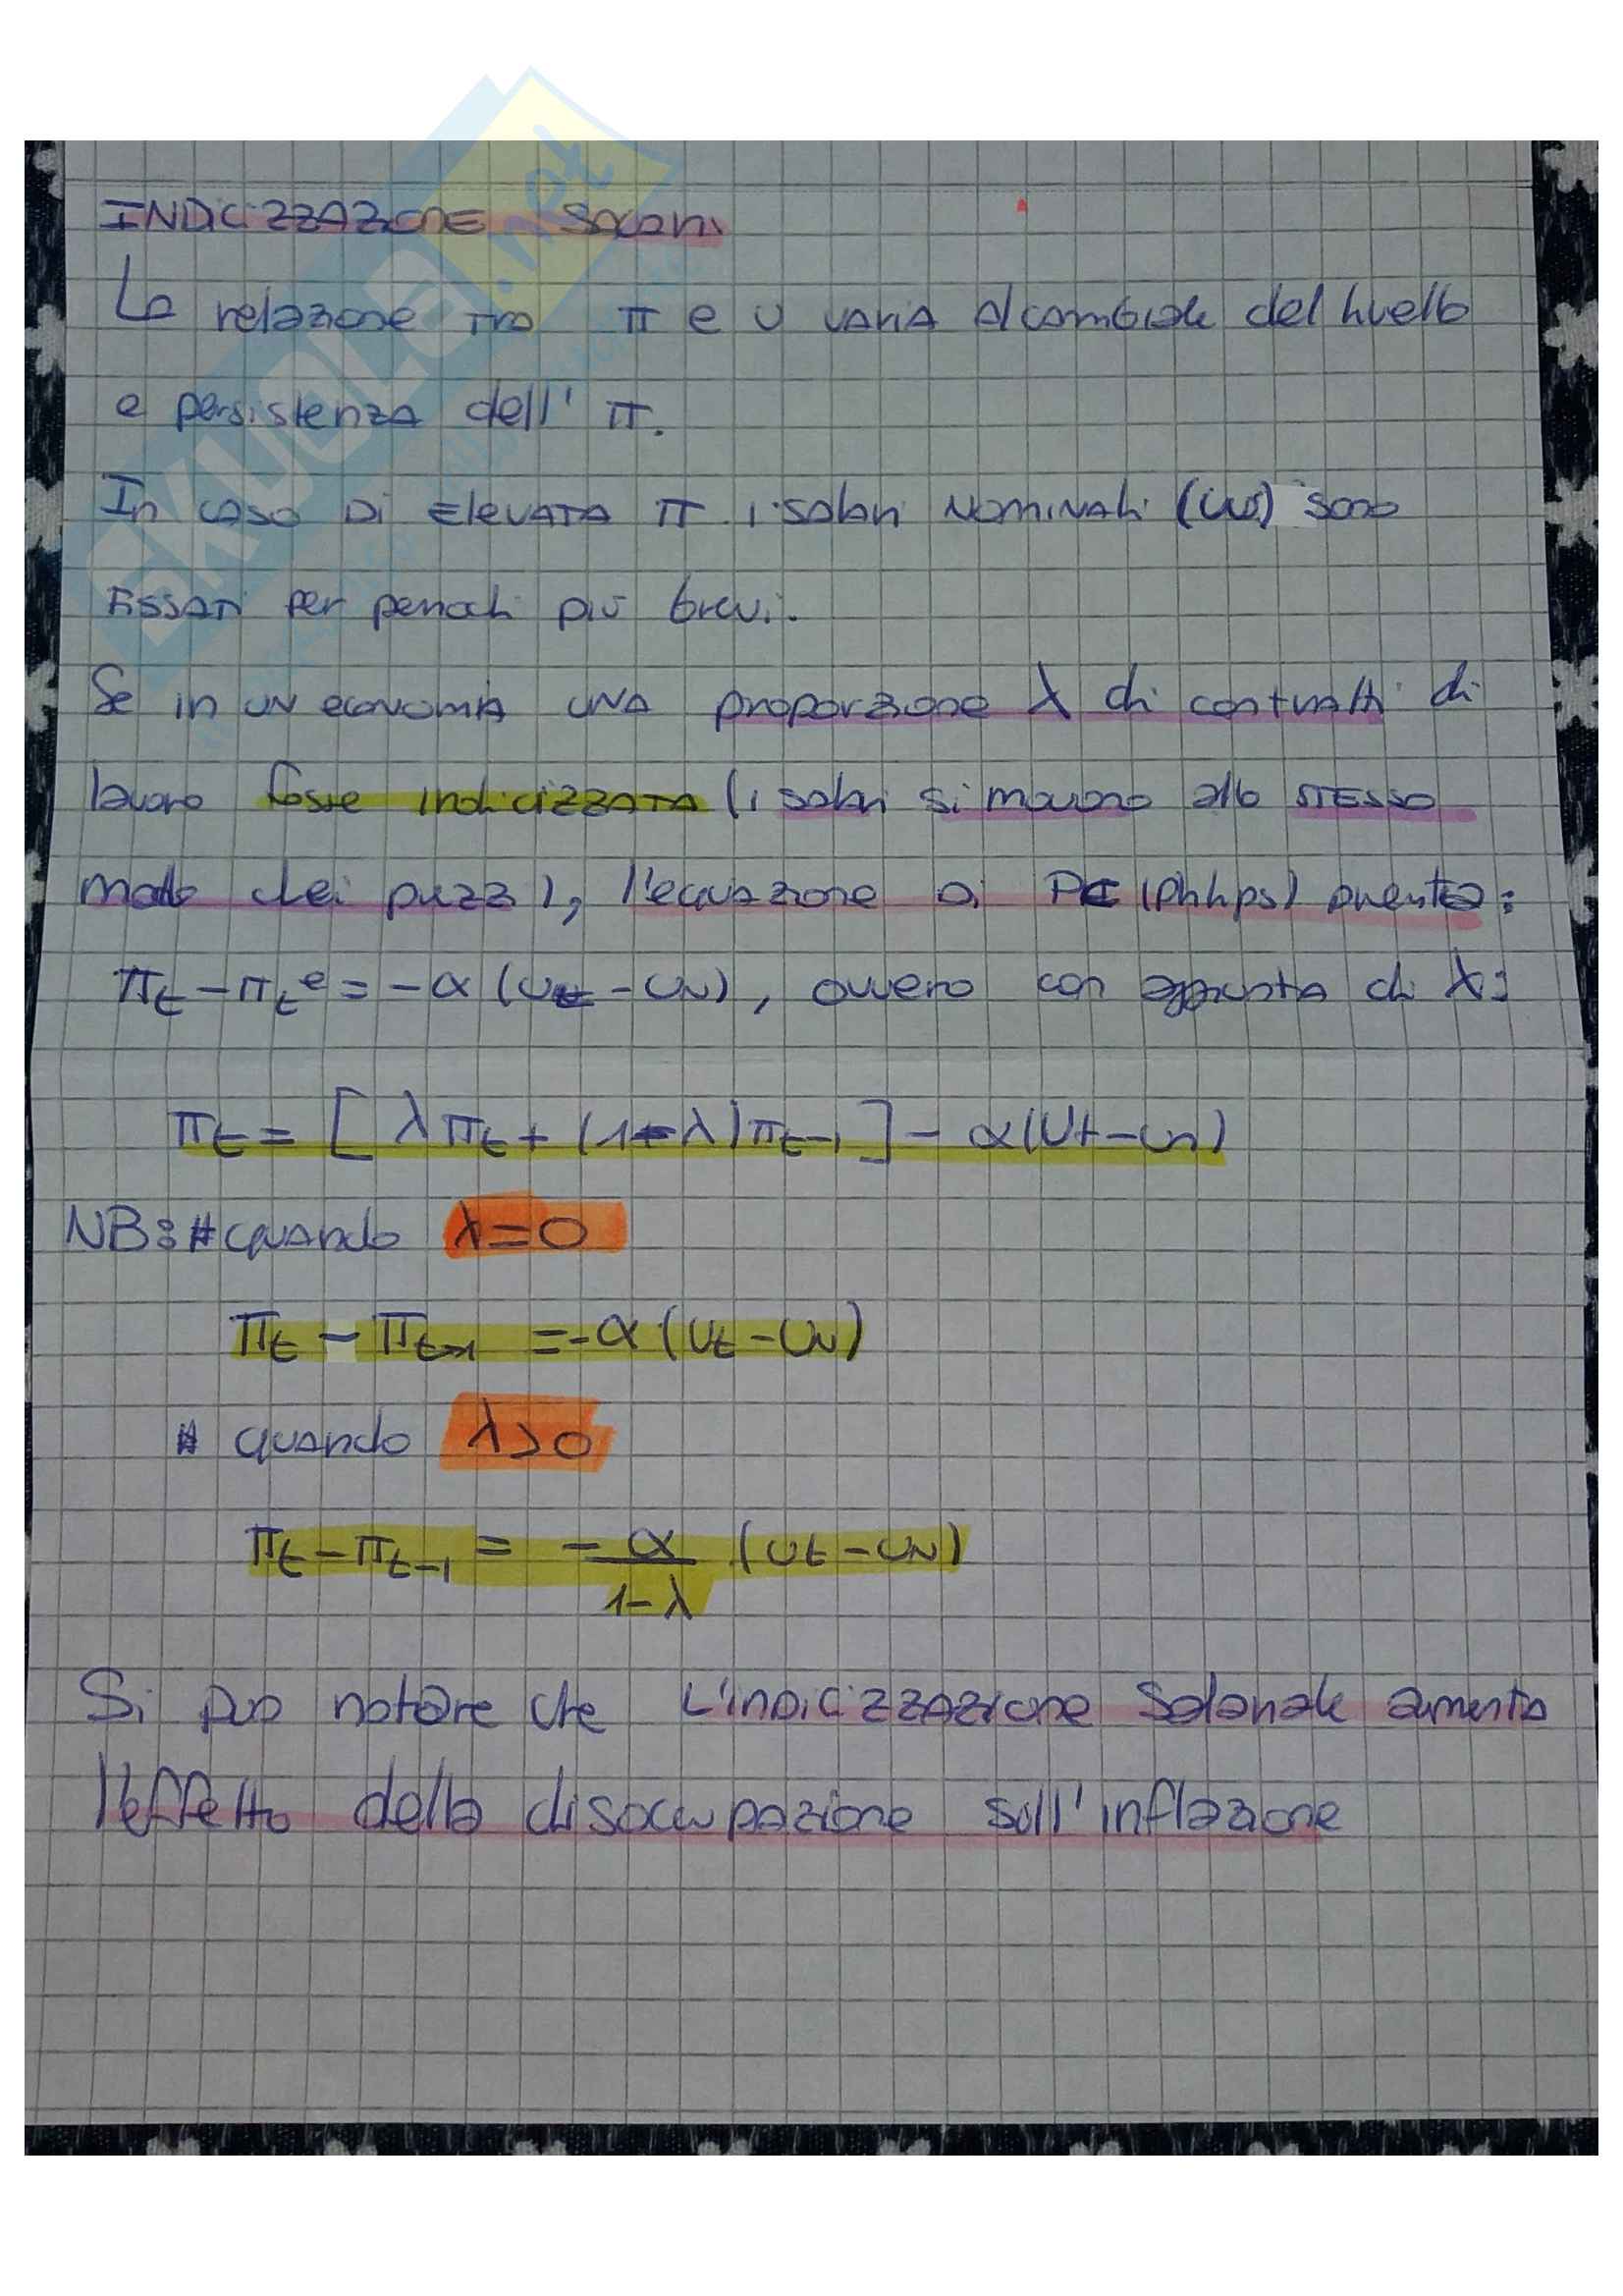 INDICIZZAZIONE Salari
La relazione tra π e u varia al cambiare del livello
e persistenza dell' π.
In caso Di Elevata π i salari Nominali (W) sono
Fissati per periodi più brevi.
Se in un economia una proporzione λ di contratti di
lavoro fosse indicizzata (i salari si movono allo STESSO
modo dei prezzi), l'equazione di PC (Phhps) diventa:
πt - πt^e = -α (ut - un), ovvero con aggiunta di λ:
πt = [λπt + (1-λ)πt-1] - α(ut-un)
NB: # quando λ=0
πt - πt-1 = -α (ut - un)
# quando λ>0
πt - πt-1 = - α/1-λ (ut - un)
Si può notare che L'indicizzazione Salariale aumenta
l'effetto della disoccupazione sull'inflazione
SKUOLA.net